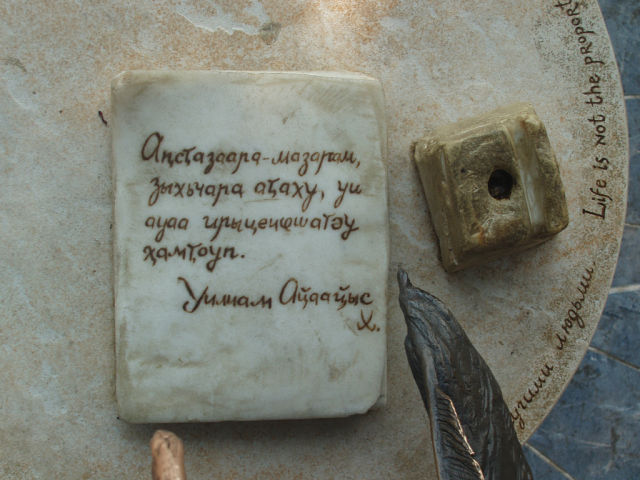 Аԥсҭазаара-мазарам,
зыхьчара аҭаху, уи
ауаа ирыцеиҩшаҭәу
ҳамҭоуп.
Уилиам Аҵааҵыс
Х.
Life is not the
людьми